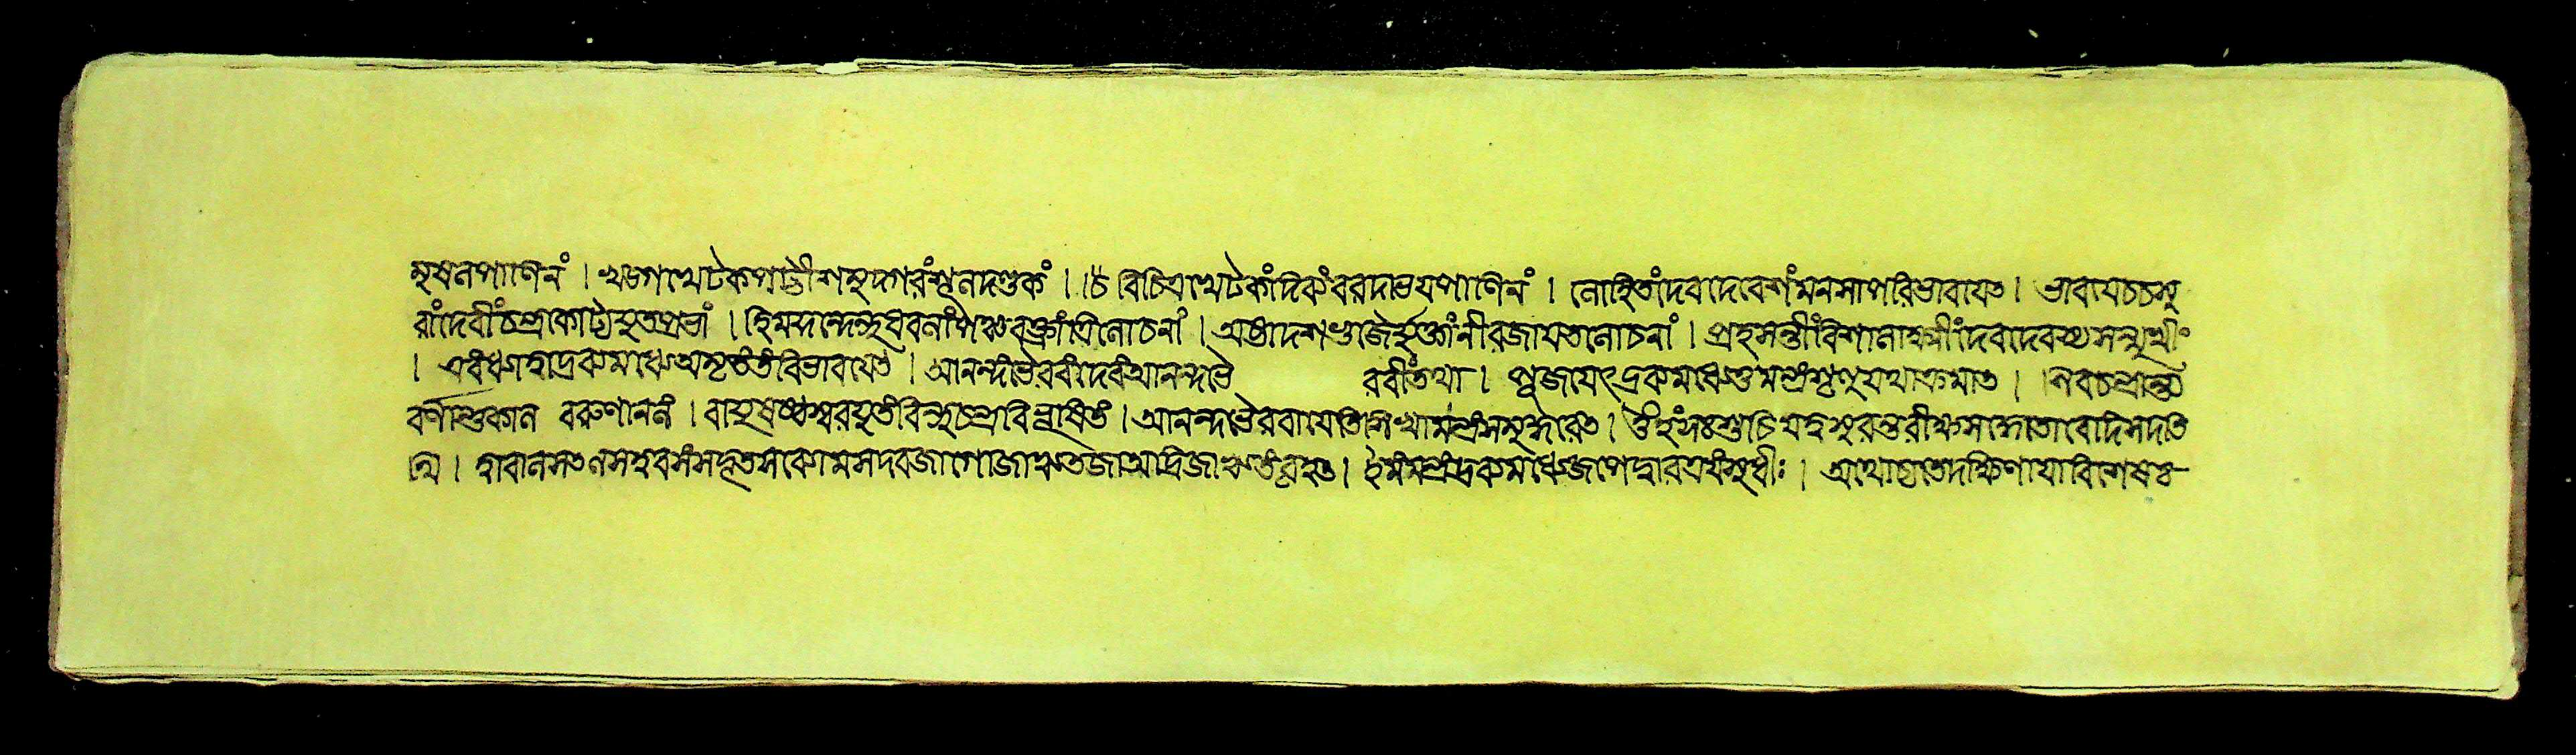 মুষলপাণিনং । খড়্গখেটকপট্টীশমুদ্গরংশূলদণ্ডকং । । চৈ বিচিত্রখেটকাংদিরুং বরদাভয়পাণিনং । লোহিতাংদেবদেবেশংমনসাপরিভাবয়েৎ । ভাবয়েচ্চসু
রাংদেবীংচন্দ্রকোট্যযুতপ্রভাং । হিমকুন্দেন্দুধবলাংপঞ্চবক্ত্রাংত্রিলোচনাং । অষ্টাদশভুজৈর্যুক্তাংনীরজায়তলোচনাং । প্রহসন্তীংবিশালাক্ষীংদেবদেবস্যসন্মুখীং
। এবং ধ্যাত্বাদ্রব্যমধ্যে অমৃতংতংবিভাবয়েৎ । আনন্দভৈরবীংদেবীংআনন্দভৈ রবীংতথা । পূজায়েৎদ্রব্যমধ্যেতুমন্ত্রংশৃণুযথাক্রমাত । । নবচন্দ্রান্তে
বর্ণাশুকাল বরুণাননং । বায়ুষষ্ঠস্বরযুতংবিন্দুচন্দ্রবিভূষিতং । আনন্দভৈরবায়েতিশিখামন্ত্রংসমুদ্ধরেৎ । ওঁ হংসঃশুচিষদ্বসুরন্তরীক্ষসদ্ধোতাবেদিসদতি
থি । দ্বাবানসতনসহবসংসদৃতসব্যোমসদবজাগোজাঋতজাঅদ্রিজাঋতংবৃহৎ । ইমংমন্ত্রংদ্রব্যমধ্যেজপেদ্বারত্রয়ংসুধীঃ । অথোচ্যতেদক্ষিণায়াবিশেষঃ